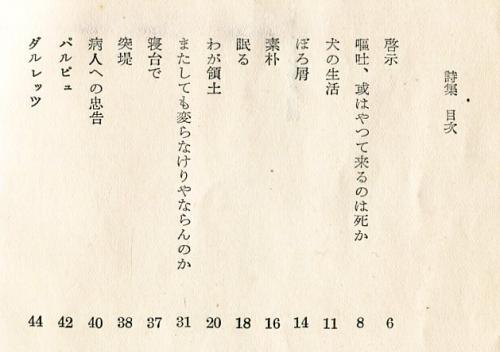 詩集 目次
啓示 6
嘔吐、或はやつて来るのは死か 8
犬の生活 11
ぼろ屑 14
素朴 16
眠る 18
わが領土 20
またしても変らなけりやならんのか 31
寝台で 37
突堤 38
病人への忠告 40
パルビュ 42
ダルレッツ 44